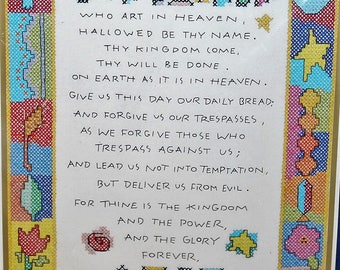 WHO ART IN HEAVEN,
HALLOWED BE THY NAME.
THY KINGDOM COME,
THY WILL BE DONE.
ON EARTH AS IT IS IN HEAVEN.
GIVE US THIS DAY OUR DAILY BREAD;
AND FORGIVE US OUR TRESPASSES,
AS WE FORGIVE THOSE WHO
TRESPASS AGAINST US;
AND LEAD US NOT INTO TEMPTATION,
BUT DELIVER US FROM EVIL.
FOR THINE IS THE KINGDOM
AND THE POWER,
AND THE GLORY
FOREVER,